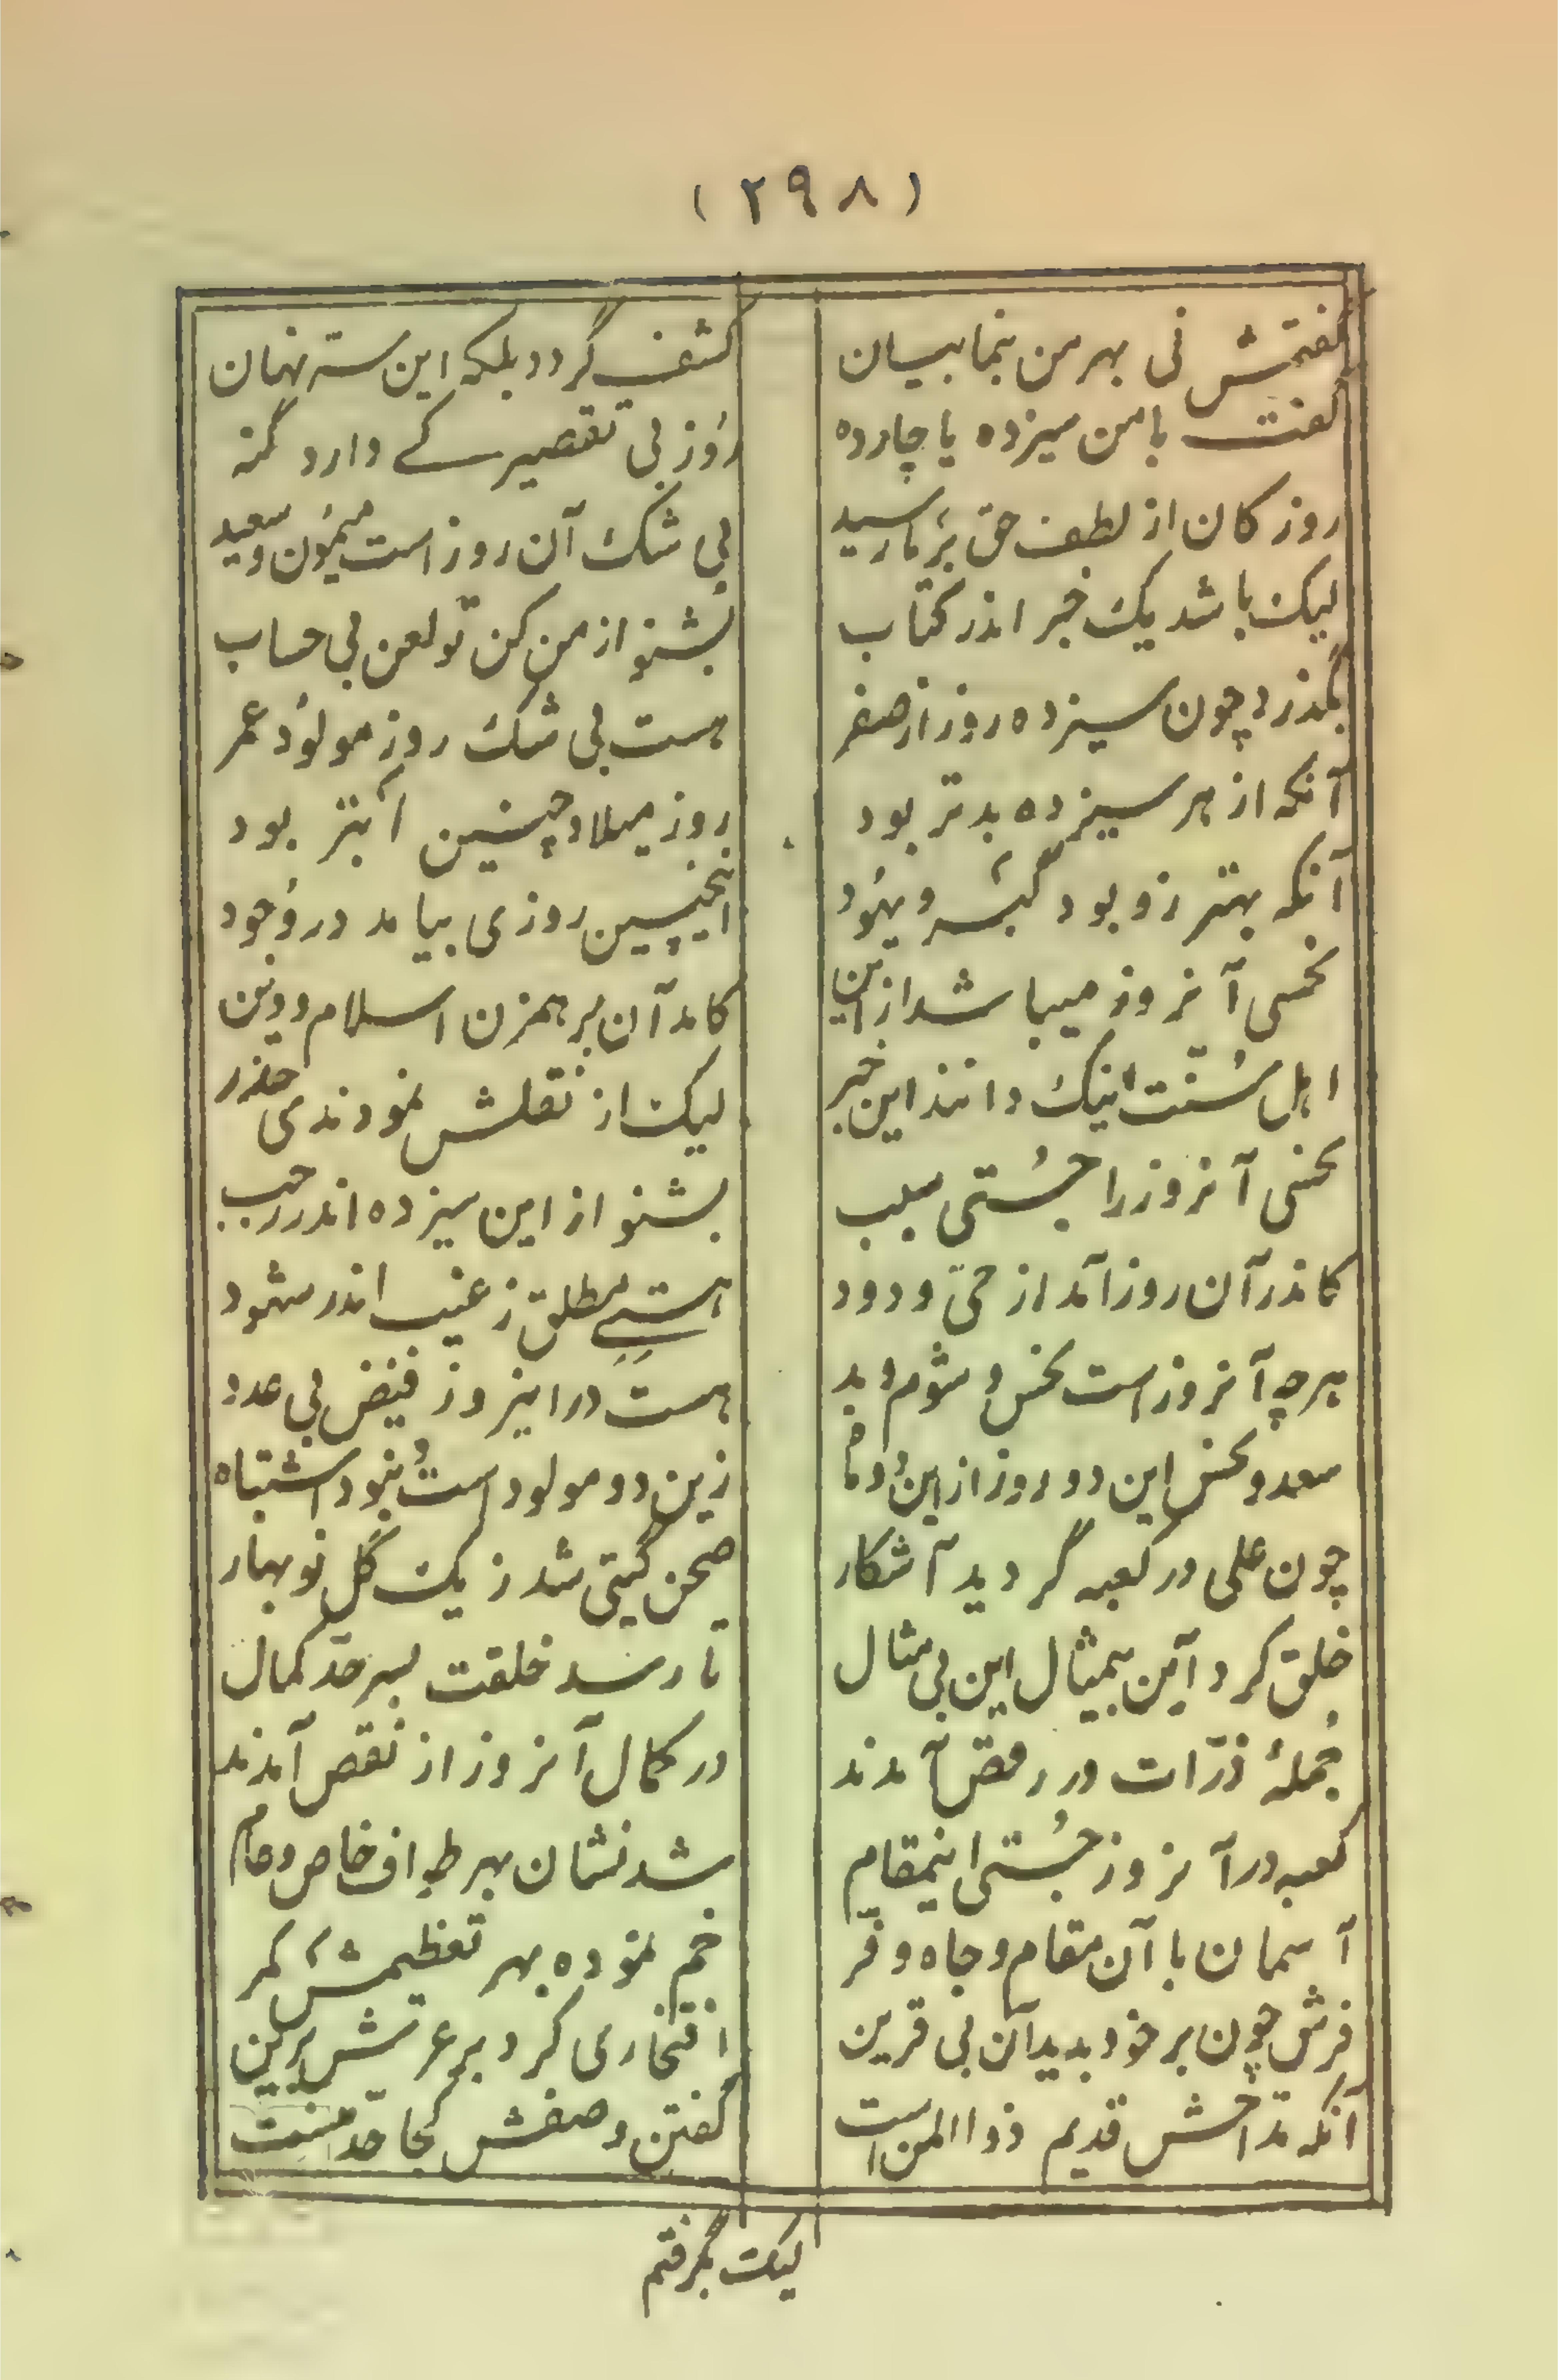 (۲۹۸)
گفتمش نی بهر من بنما بیان کشف گردد بلکه این سر نهان
گفت با من سیزده یا چارده روز بی تقصیر کے دارد گنه
روز کان از لطف حق بر ما رسید بی شک آن روز است میمون و سعید
لیک باشد یک خبر اندر کتاب بشنو از من کن تو لعن بی حساب
بگذرد چون سیزده روز از صفر هست بی شک روز مولود عمر
آنکه از هر سیزده بدتر بود روز میلاد چنین ابتر بود
آنکه بهتر زو بود گبر و یهود اینچنین روزی بیامد در وجود
نحسی آنروز میباشد از این کامد آن برهمزن اسلام و دین
اهل سُنّت اینک دانند این خبر لیک از نقلش نمودندی حذر
نحسی آنروز را جُستی سبب بشنو از این سیزده اندر رجب
کاندر آن روز آمد از حیّ ودود هستیِ مطلق ز غیب اندر شهود
هرچه آنروز است نحس و شوم و بد هست در اینروز فیض بی عدد
سعد و نحس این دو روز از این دو ماه زین دو مولود است نبود اشتباه
چون علی در کعبه گردید آشکار صحن گیتی شد ز یک گل نوبهار
خلق کرد آن بیمثال این بی مثال تا رسد خلقت بسر حدّ کمال
جُملهٔ ذرّات در رقص آمدند در کمال آنروز از نقص آمدند
کعبه در آنروز جُستی اینمقام شد نشان بهر طواف خاص و عام
آسمان با آن مقام و جاه و فر خم نموده بهر تعظیمش کمر
فرش چون بر خود بدید آن بی قرین افتخاری کرد بر عرش برین
آنکه مدّاحش قدیم ذوالمن است گفتن وصفش کجا حدّ منست
لیک بگرفتم